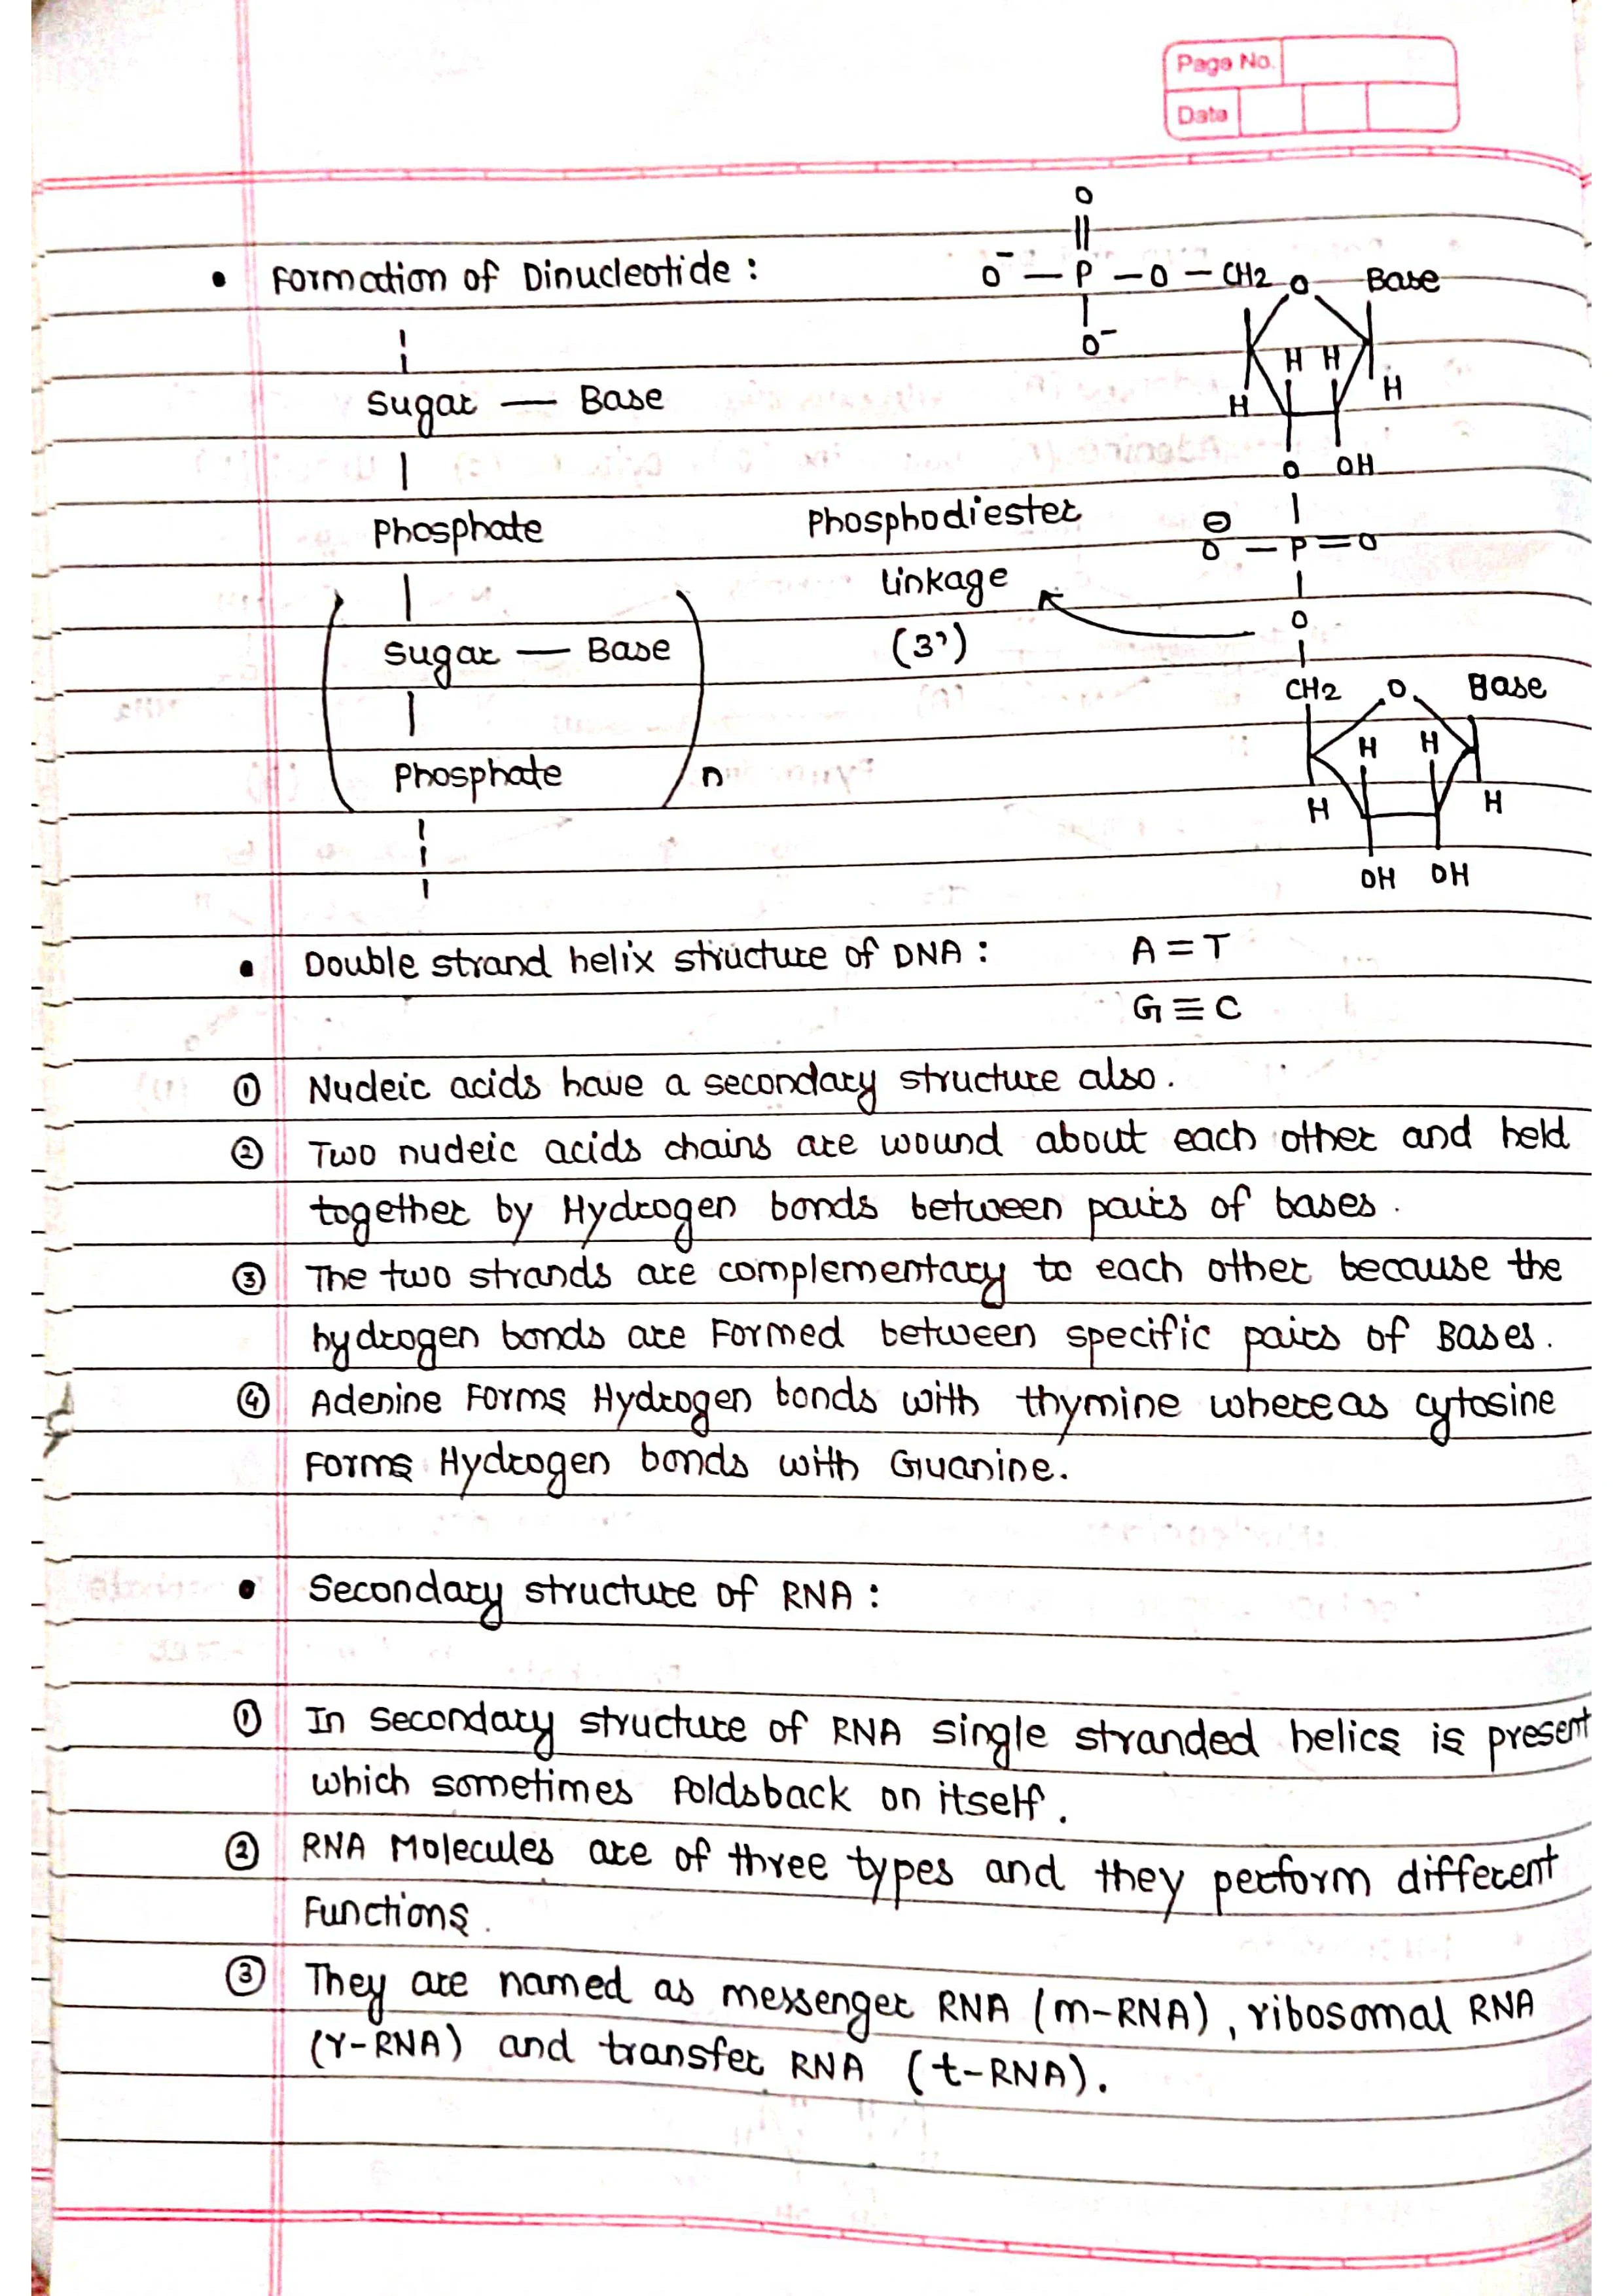 Page No.
Date
• Formation of Dinucleotide :
O
||
O⁻ — P — O — CH2 O Base
|
O⁻
H H
H H
O OH
|
Sugar — Base
|
Phosphate
|
Sugar — Base
|
Phosphate n
Phosphodiester
linkage
(3')
⊖
O — P = O
|
O
|
CH2 O Base
H H
H H
OH OH
• Double strand helix structure of DNA : A = T
G ≡ C
① Nucleic acids have a secondary structure also.
② Two nucleic acids chains are wound about each other and held
together by Hydrogen bonds between pairs of bases.
③ The two strands are complementary to each other because the
hydrogen bonds are Formed between specific pairs of Bases.
④ Adenine Forms Hydrogen bonds with thymine whereas cytosine
Forms Hydrogen bonds with Guanine.
• Secondary structure of RNA :
① In secondary structure of RNA single stranded helics is present
which sometimes Foldsback on itself.
② RNA Molecules are of three types and they perform different
Functions.
③ They are named as messenger RNA (m-RNA), ribosomal RNA
(r-RNA) and transfer RNA (t-RNA).